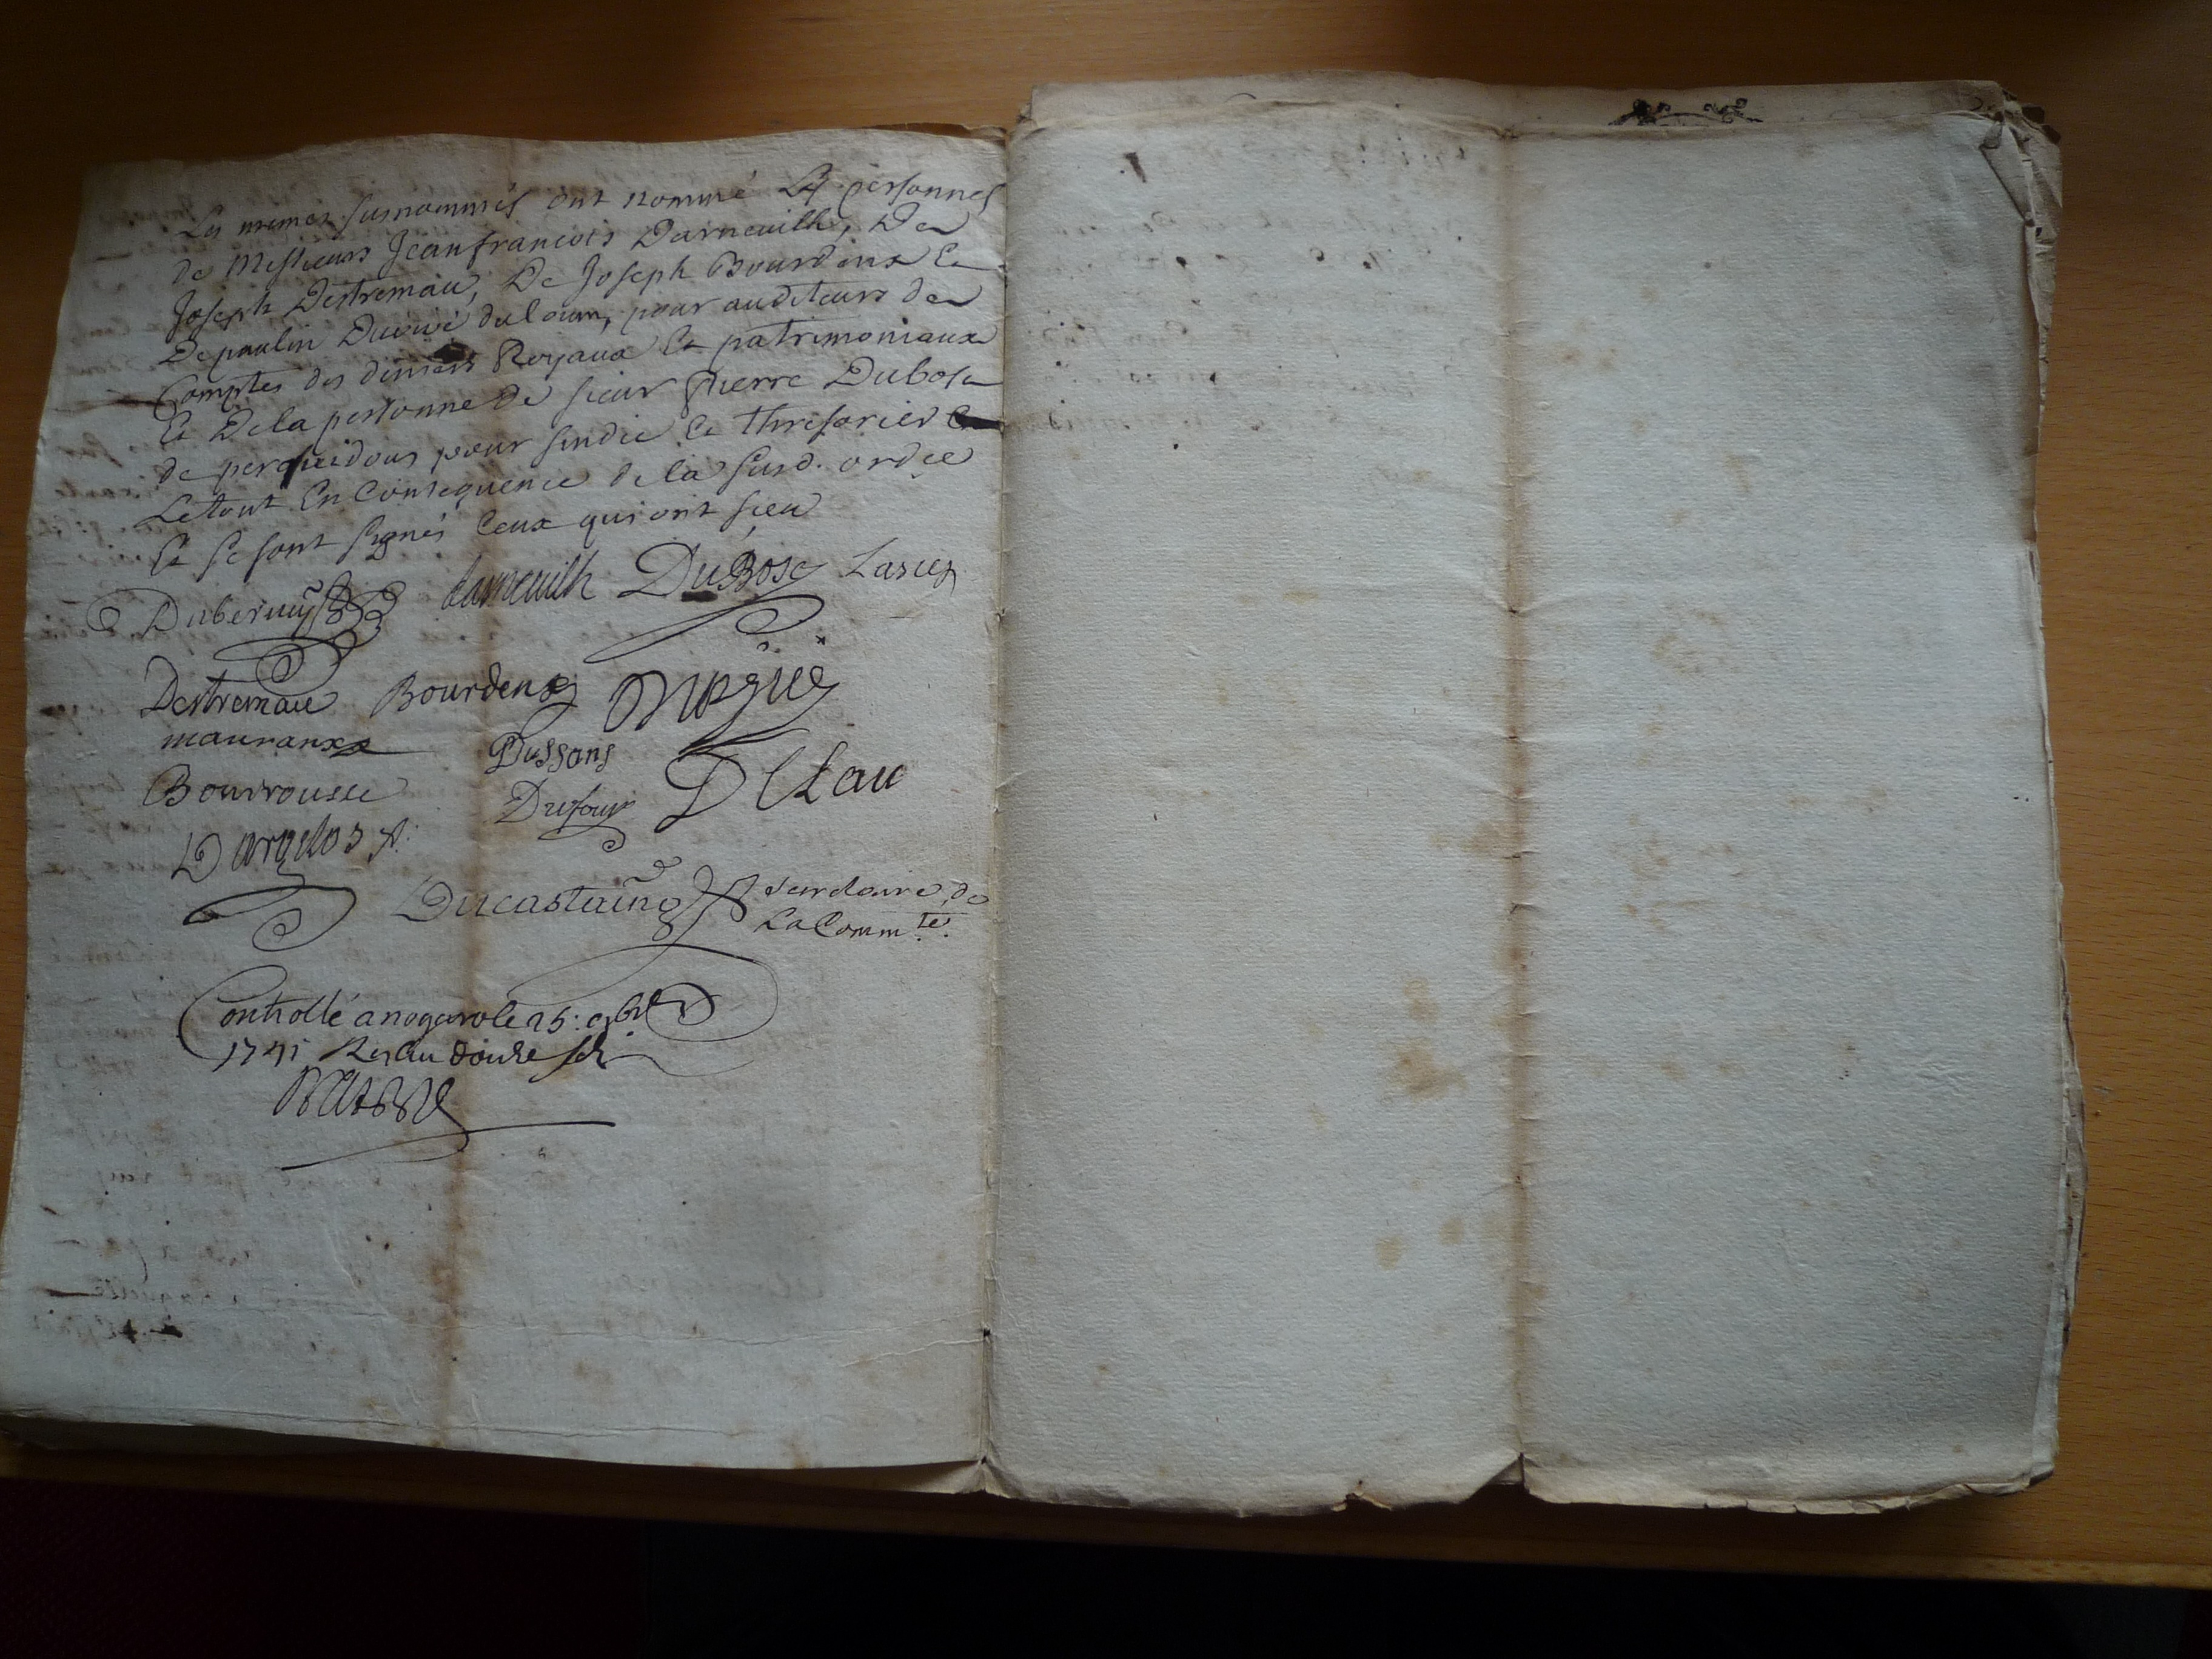 Les mêmes surnommés ont nommé Les personnes
de Messieurs Jeanfrancois Darneuilh, De
Joseph Destremau, De Joseph Bourdens Et
De paulin Duvivé du loum, pour auditeurs de
Comptes des deniers Royaux Et patrimoniaux
Et De la personne de sieur Pierre Dubosc
de perquidous pour sindic Et thresorier
Le tout En Consequence de la susd. ordce
Et se sont signés Ceux qui ont sceu
Dubernuy Darneuilh DuBosc
Destremau Bourdens
mauranx Dussans
Bourrousse Dufour DLau
Dargelos
Ducastaing de
La Commté.
Controllé a nogaro le 25: 9bre
1741 Reçu douze sols